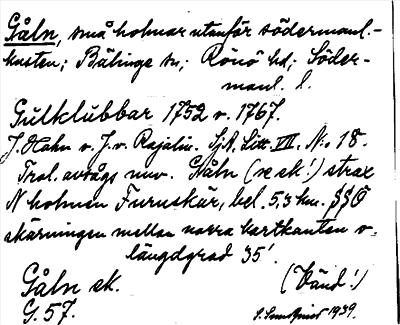 Gåln, små holmar utanför södermanl.-
kusten; Bälinge sn; Rönö hd; Söder-
manl. l.
Gulklubbar 1752 v. 1767.
J. Hahn v. J. v. Rajalin. Sj.A. Litt. VII. N:o 18.
Trol. avsågs nuv. Gåln (se ek!) strax
N holmen Furuskär, bel. 5,3 km. SSÖ
skärningen mellan norra kartkanten o.
längdgrad 35'.
Gåln sk. (Vänd!)
G. 57. 1939.